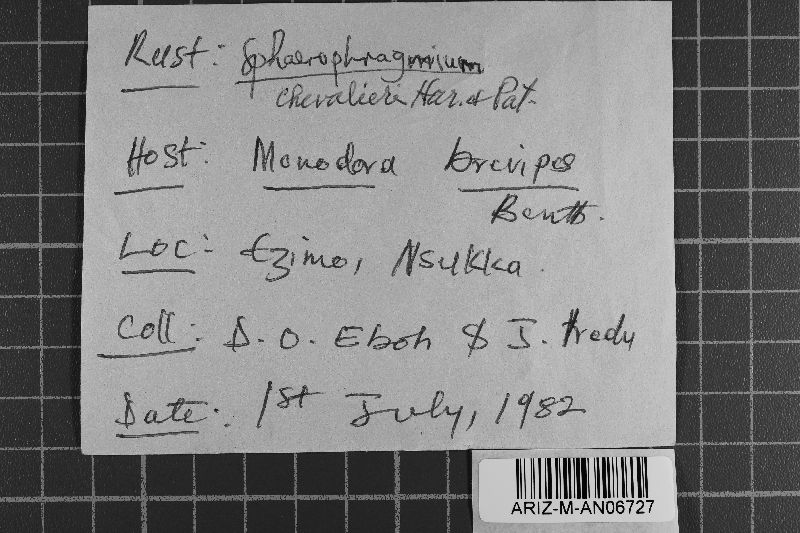 Rust: Sphaerophragmium
Chevalieri Har. et Pat.
Host: Monodora brevipes
Benth.
Loc:- Ezimo, Nsukka.
Coll:- D. O. Eboh & J.
Date:. 1st July, 1982
ARIZ-M-AN06727